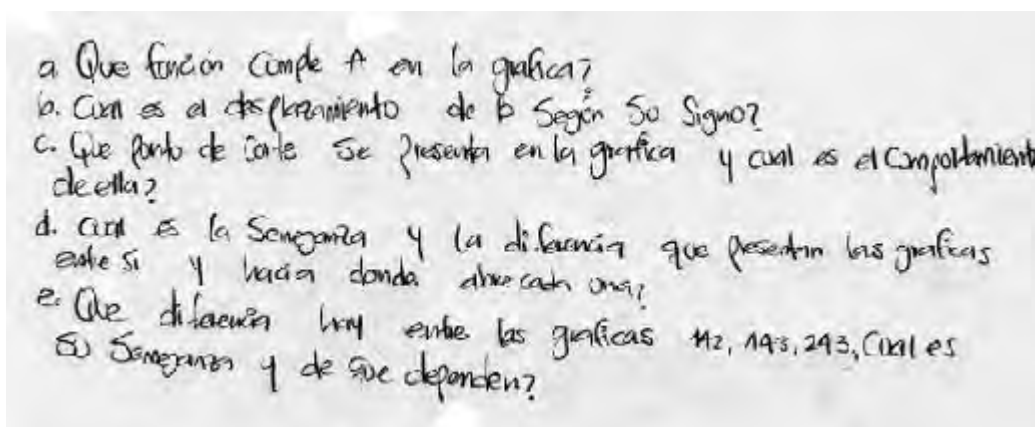 a Que función cumple A en la grafica?
b. Cual es el desplazamiento de b Según Su Signo?
c. Que Punto de Corte Se Presenta en la grafica y cual es el Comportamiento
de ella?
d. Cual es la Semejanza y la diferencia que presentan las graficas
entre Si y hacia donde abre cada una?
e. Que diferencia hay entre las graficas 1y2, 1y3, 2y3, Cual es
Su Semejanza y de que dependen?